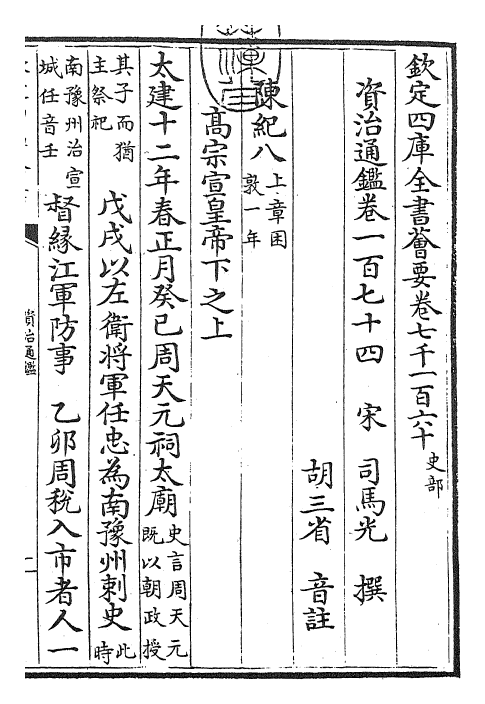 欽定四庫全書薈要卷七千一百六十 史部
資治通鑑卷一百七十四 宋 司馬光 撰
胡三省 音註
陳紀八 上章困敦一年
高宗宣皇帝下之上
太建十二年春正月癸巳周天元祠太廟 史言周天元既以朝政授
其子而猶主祭祀 戊戌以左衛將軍任忠為南豫州刺史 此時
南豫州治宣城任音壬 督緣江軍防事 乙卯周稅入市者人一
資治通鑑